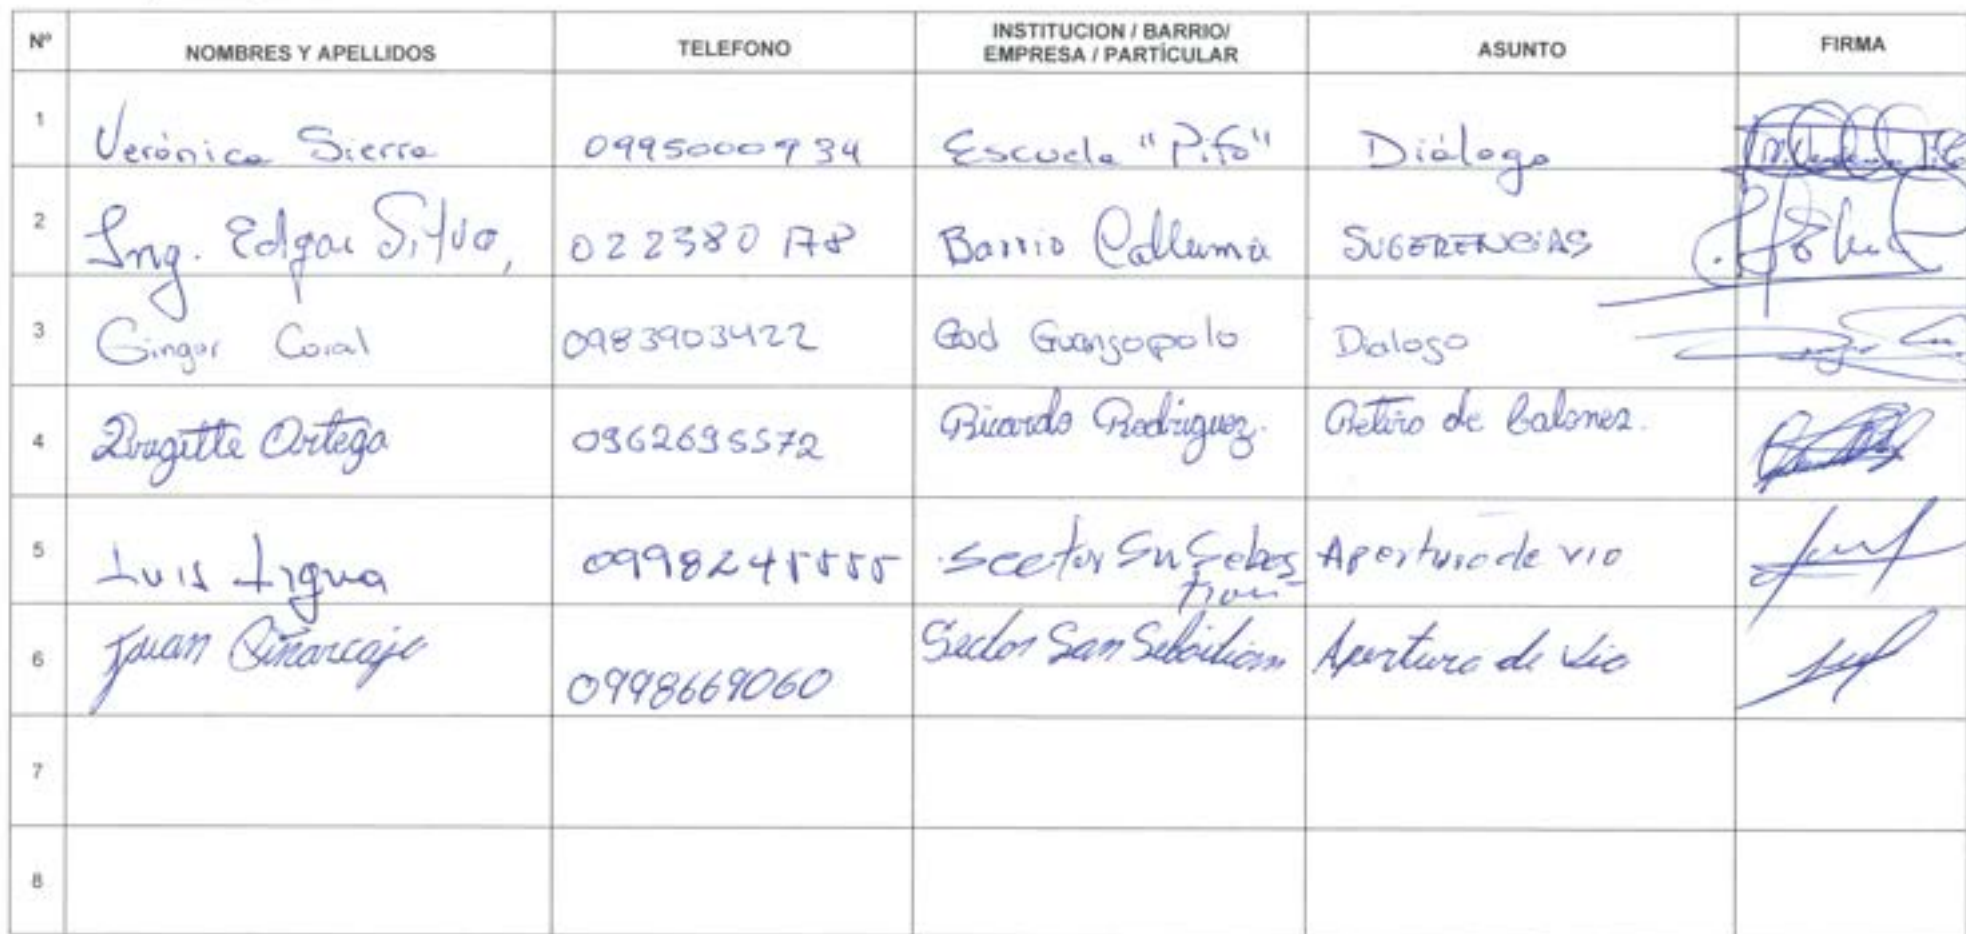 Nº NOMBRES Y APELLIDOS TELEFONO INSTITUCION / BARRIO/ EMPRESA / PARTÍCULAR ASUNTO FIRMA
1 Verónica Sierra 0995000934 Escuela "Pifo" Diálogo
2 Ing. Edgar Silva, 022380178 Barrio Calluma SUGERENCIAS
3 Gingor Coral 0983903422 Gad Guangopolo Dialogo
4 Bragitte Ortega 0962695572 Ricardo Rodriguez. Retiro de balones.
5 Luis Ligua 0998245555 Sector Sn Sebas tian Apertura de via
6 Juan 0998669060 Sector San Sebastian Apertura de via
7
8